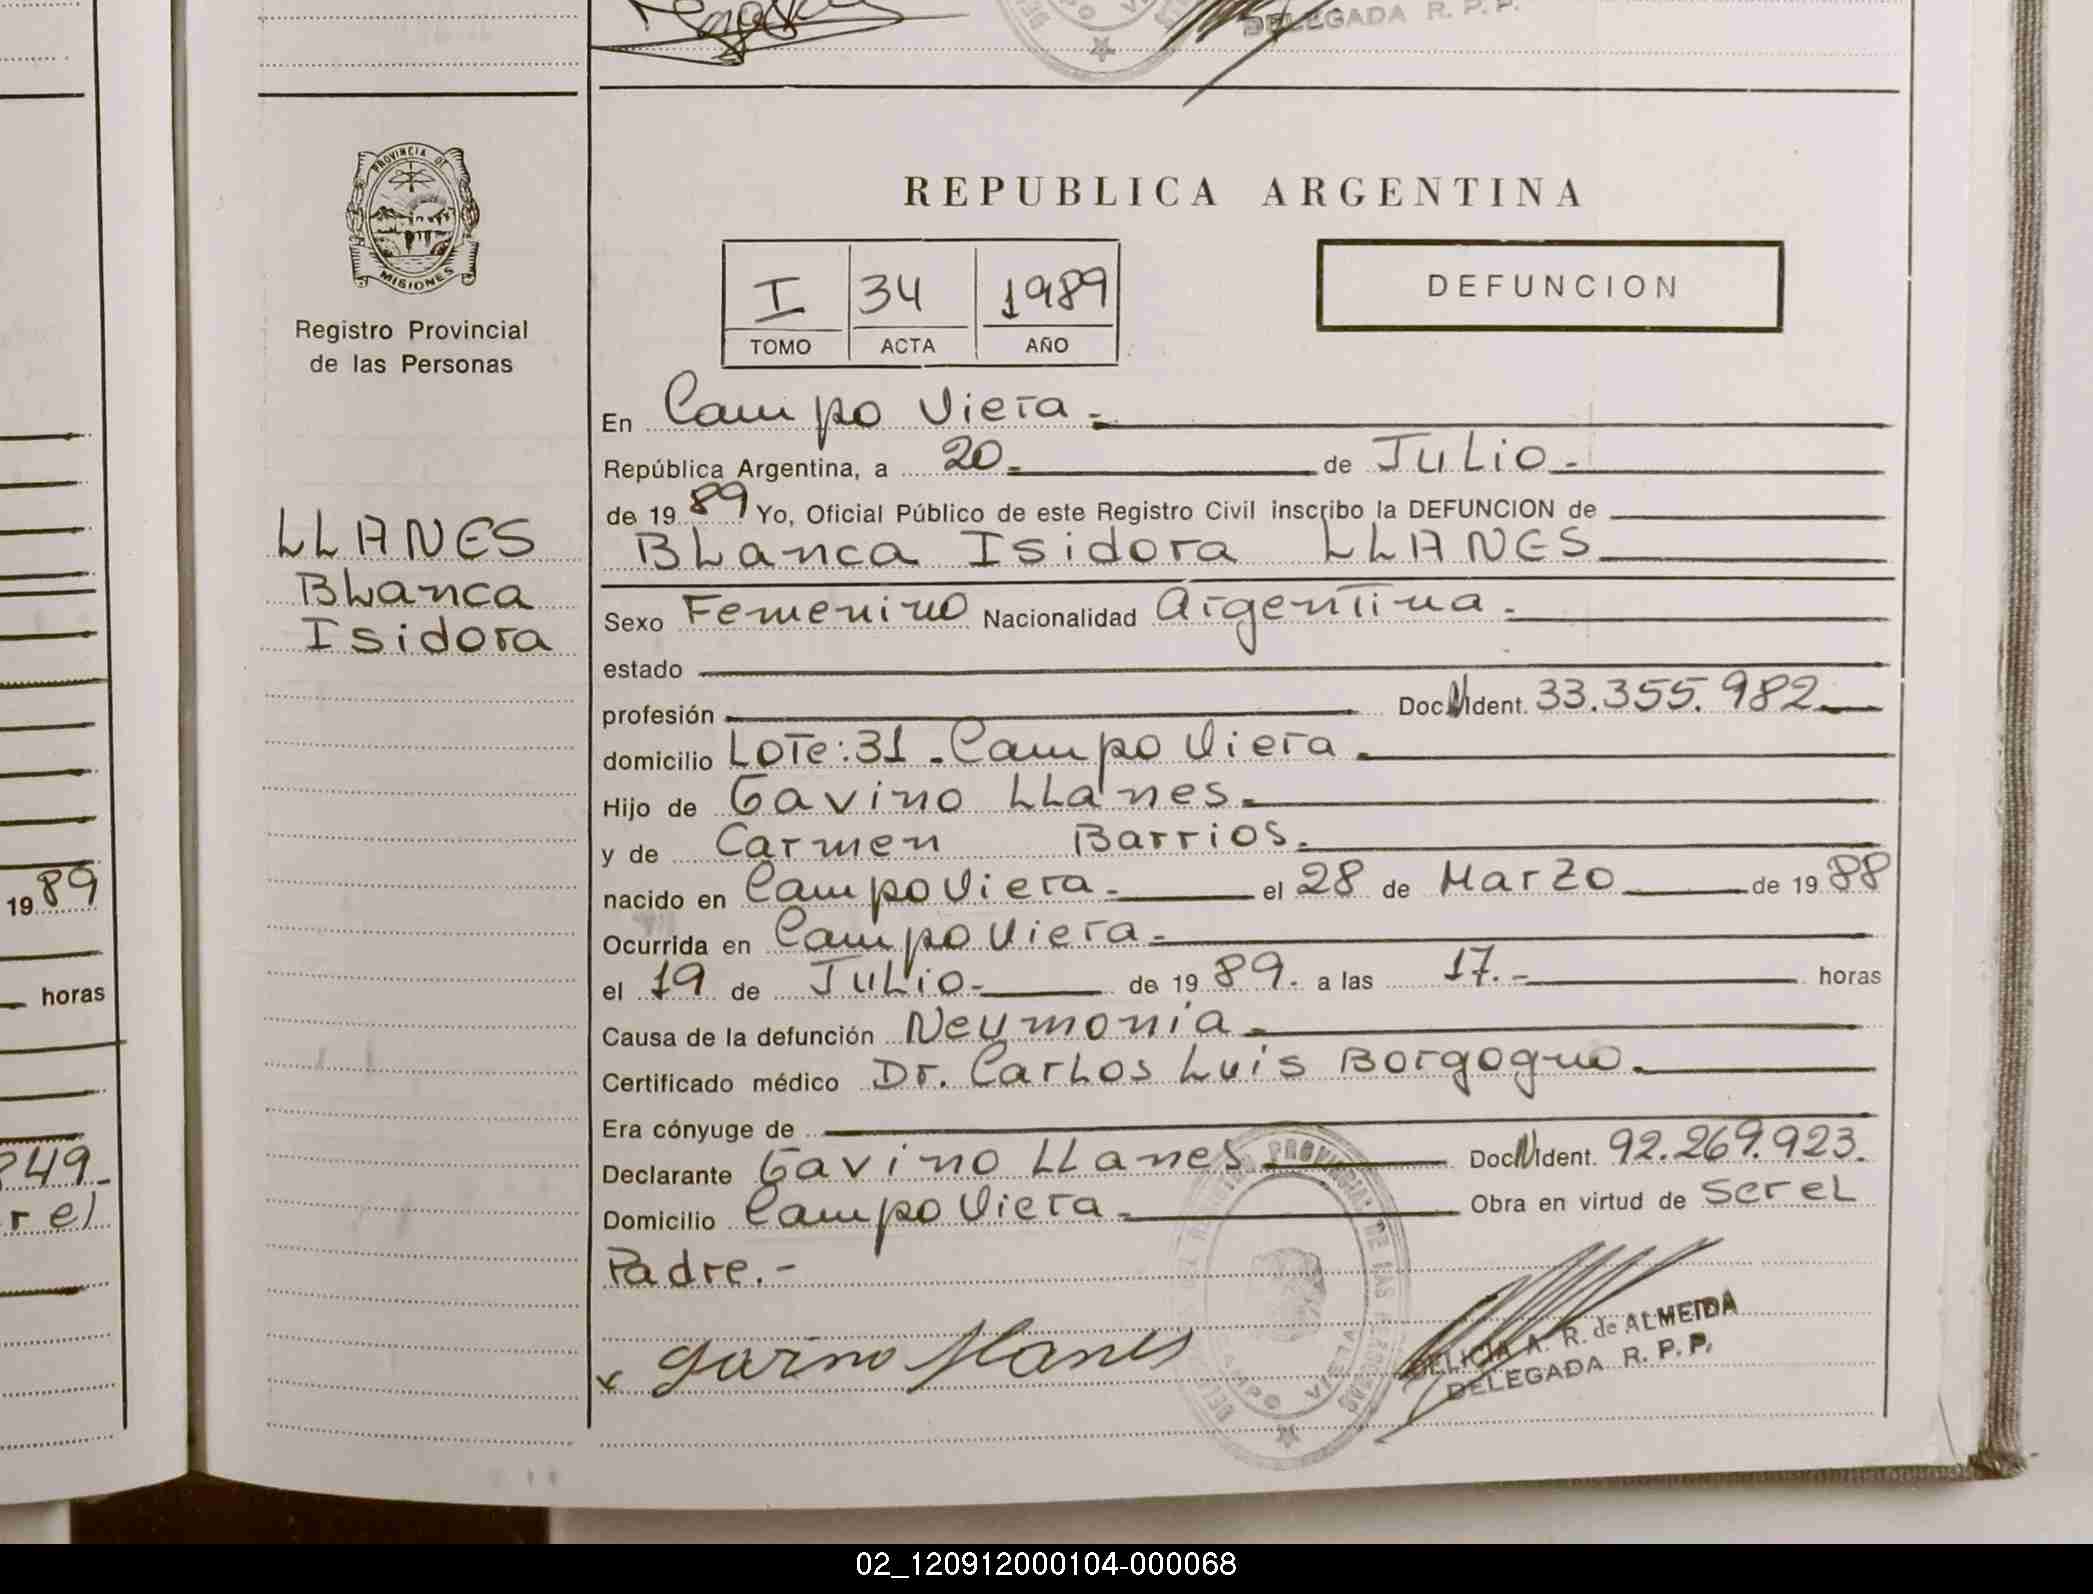 DELEGADA R. P. P.
PROVINCIA DE
MISIONES
Registro Provincial
de las Personas
LLANES
Blanca
Isidora
REPUBLICA ARGENTINA
I 34 1989
TOMO ACTA AÑO
DEFUNCION
En Campo Viera.-
República Argentina, a 20.- de Julio.-
de 1989 Yo, Oficial Público de este Registro Civil inscribo la DEFUNCION de
Blanca Isidora LLANES
Sexo Femenino Nacionalidad Argentina.-
estado
profesión Doc. N Ident. 33.355.982
domicilio Lote: 31 - Campo Viera
Hijo de Gavino Llanes.
y de Carmen Barrios.
nacido en Campo Viera.- el 28 de Marzo de 1988
Ocurrida en Campo Viera.-
el 19 de Julio.- de 1989. a las 17.- horas
Causa de la defunción Neumonia
Certificado médico Dr. Carlos Luis Borgogno.
Era cónyuge de
Declarante Gavino Llanes Doc. N Ident. 92.269.923.
Domicilio Campo Viera.- Obra en virtud de ser el
Padre.-
Gavino Llanes
DELICIA A. R. de ALMEIDA
DELEGADA R. P. P.
1989
horas
249
r el
02_120912000104-000068